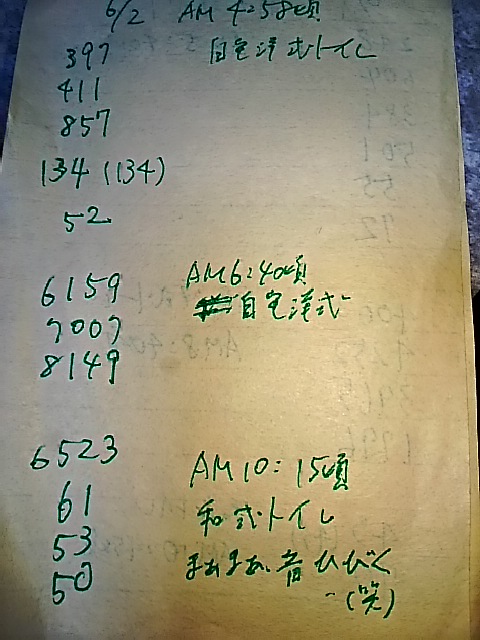 6/2 AM 4:58頃
397 自宅洋式トイレ
411
857
134 (134)
52
6159 AM6:40頃
7007 自宅洋式
8149
6523 AM10:15頃
61 和式トイレ
53 まぁまぁ、音ひびく
50 (笑)